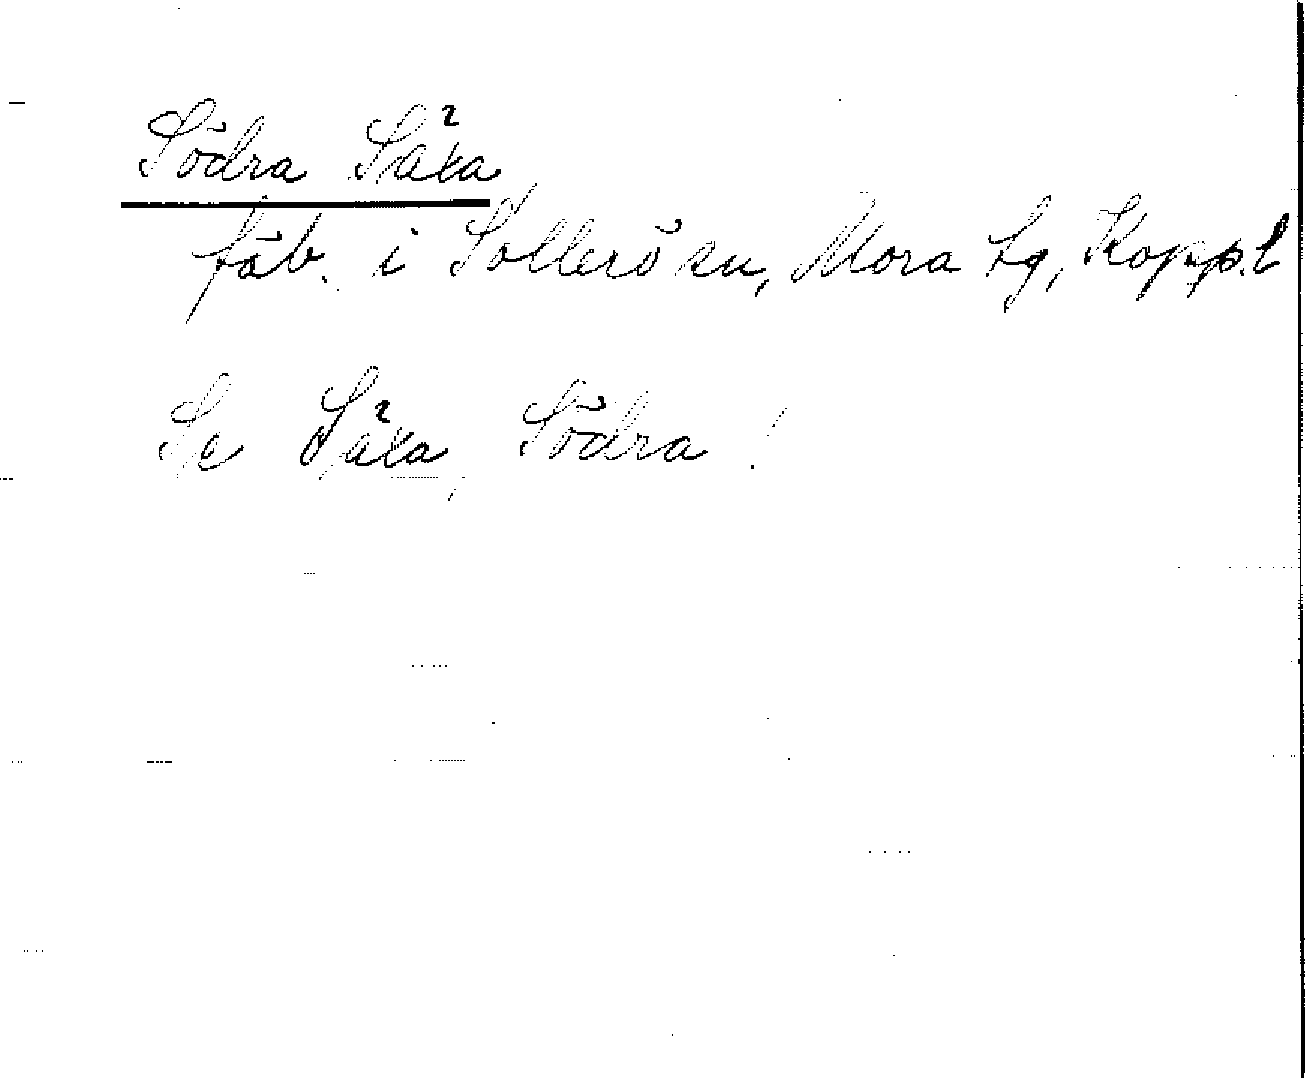 Södra Säka
fäb. i Sollerö sn, Mora tg, Koppb. l
Se Säka, Södra!